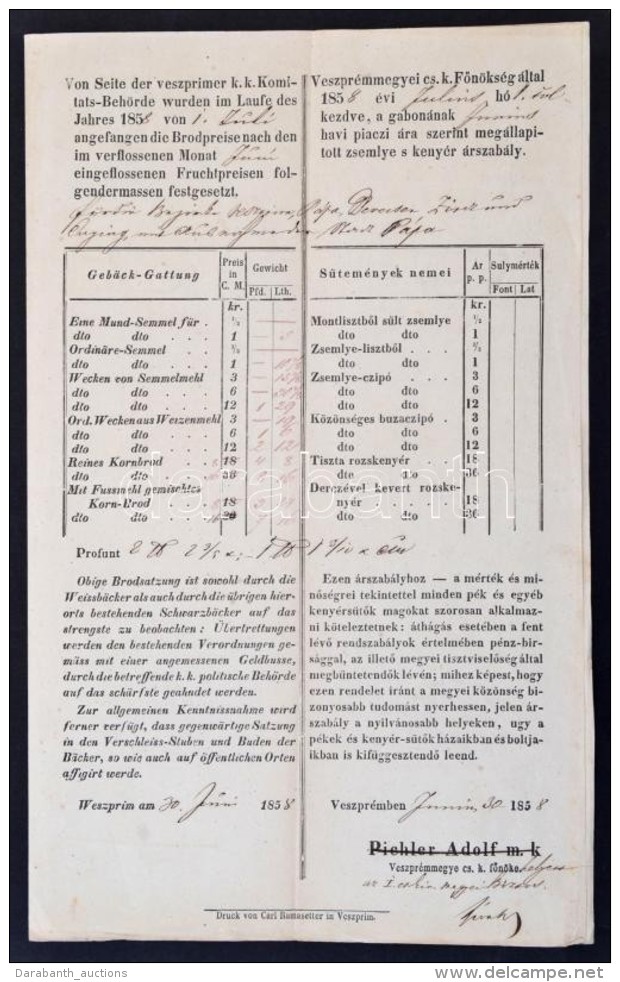 Von Seite der veszprimer k. k. Komi-
tats-Behörde wurden im Laufe des
Jahres 1858 von 1. Juli
angefangen die Brodpreise nach den
im verflossenen Monat Juni
eingeflossenen Fruchtpreisen fol-
gendermassen festgesetzt.
Veszprémmegyei cs. k. Főnökség által
1858 évi Julius hó 1.
kezdve, a gabonának Junius
havi piaczi ára szerint megállapi-
tott zsemlye s kenyér árszabály.
Pápa, Devecser, Zirz und
Stadt Pápa
Gebäck-Gattung Preis in C. M. Gewicht
Pfd. Lth.
kr.
Eine Mund-Semmel für . ½
dto dto . . . 1
Ordinäre-Semmel . . ½
dto dto . . . 1
Wecken von Semmelmehl 3
dto dto . . . 6
dto dto . . . 12 1 29
Ord. Wecken aus Weizenmehl 3
dto dto . . . 6 1
dto dto . . . 12 2 12
Reines Kornbrod . . 18 4 8
dto dto . . . 36
Mit Fussmehl gemischtes
Korn-Brod . . . 18
dto dto . . .
Sütemények nemei Ar p. p. Sulymérték
Font Lat
kr.
Montlisztből sült zsemlye ½
dto dto 1
Zsemlye-lisztből . . . ½
dto dto 1
Zsemlye-czipó . . . 3
dto dto 6
dto dto 12
Közönséges buzaczipó . 3
dto dto 6
dto dto 12
Tiszta rozskenyér . 18
dto dto 36
Derczével kevert rozske-
nyér . . . 18
dto dto 36
Profunt 2 ℔
Obige Brodsatzung ist sowohl durch die
Weissbäcker als auch durch die übrigen hier-
orts bestehenden Schwarzbäcker auf das
strengste zu beobachten: Übertrettungen
werden den bestehenden Verordnungen ge-
mäss mit einer angemessenen Geldbusse,
durch die betreffende k. k. politische Behörde
auf das schärfste geahndet werden.
Zur allgemeinen Kenntnissnahme wird
ferner verfügt, dass gegenwärtige Satzung
in den Verschleiss-Stuben und Buden der
Bäcker, so wie auch auf öffentlichen Orten
affigirt werde.
Weszprim am 30. Juni 1858
Ezen árszabályhoz — a mérték és mi-
nőségrei tekintettel minden pék és egyéb
kenyérsütők magokat szorosan alkalmaz-
ni köteleztetnek: áthágás esetében a fent
lévő rendszabályok értelmében pénz-bir-
sággal, az illető megyei tisztviselőség által
megbüntetendők lévén; mihez képest, hogy
ezen rendelet iránt a megyei közönség bi-
zonyosabb tudomást nyerhessen, jelen ár-
szabály a nyilvánosabb helyeken, ugy a
pékek és kenyér-sütők házaikban és boltja-
ikban is kifüggesztendő leend.
Veszprémben Junius 30 1858
Pichler Adolf m. k
Veszprémmegye cs. k. főnöke
Druck von Carl Ramasetter in Veszprim.
darabanth
Darabanth_auctions